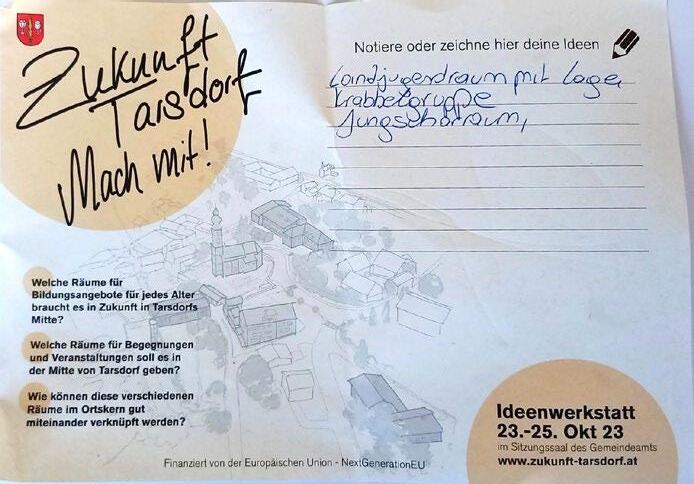 Zukunft
Tarsdorf
Mach mit!
Notiere oder zeichne hier deine Ideen
Landjugendraum mit Lager
Krabbelgruppe
Jungscharraum,
Welche Räume für
Bildungsangebote für jedes Alter
braucht es in Zukunft in Tarsdorfs
Mitte?
Welche Räume für Begegnungen
und Veranstaltungen soll es in
der Mitte von Tarsdorf geben?
Wie können diese verschiedenen
Räume im Ortskern gut
miteinander verknüpft werden?
Ideenwerkstatt
23.-25. Okt 23
im Sitzungssaal des Gemeindeamts
www.zukunft-tarsdorf.at
Finanziert von der Europäischen Union - NextGenerationEU